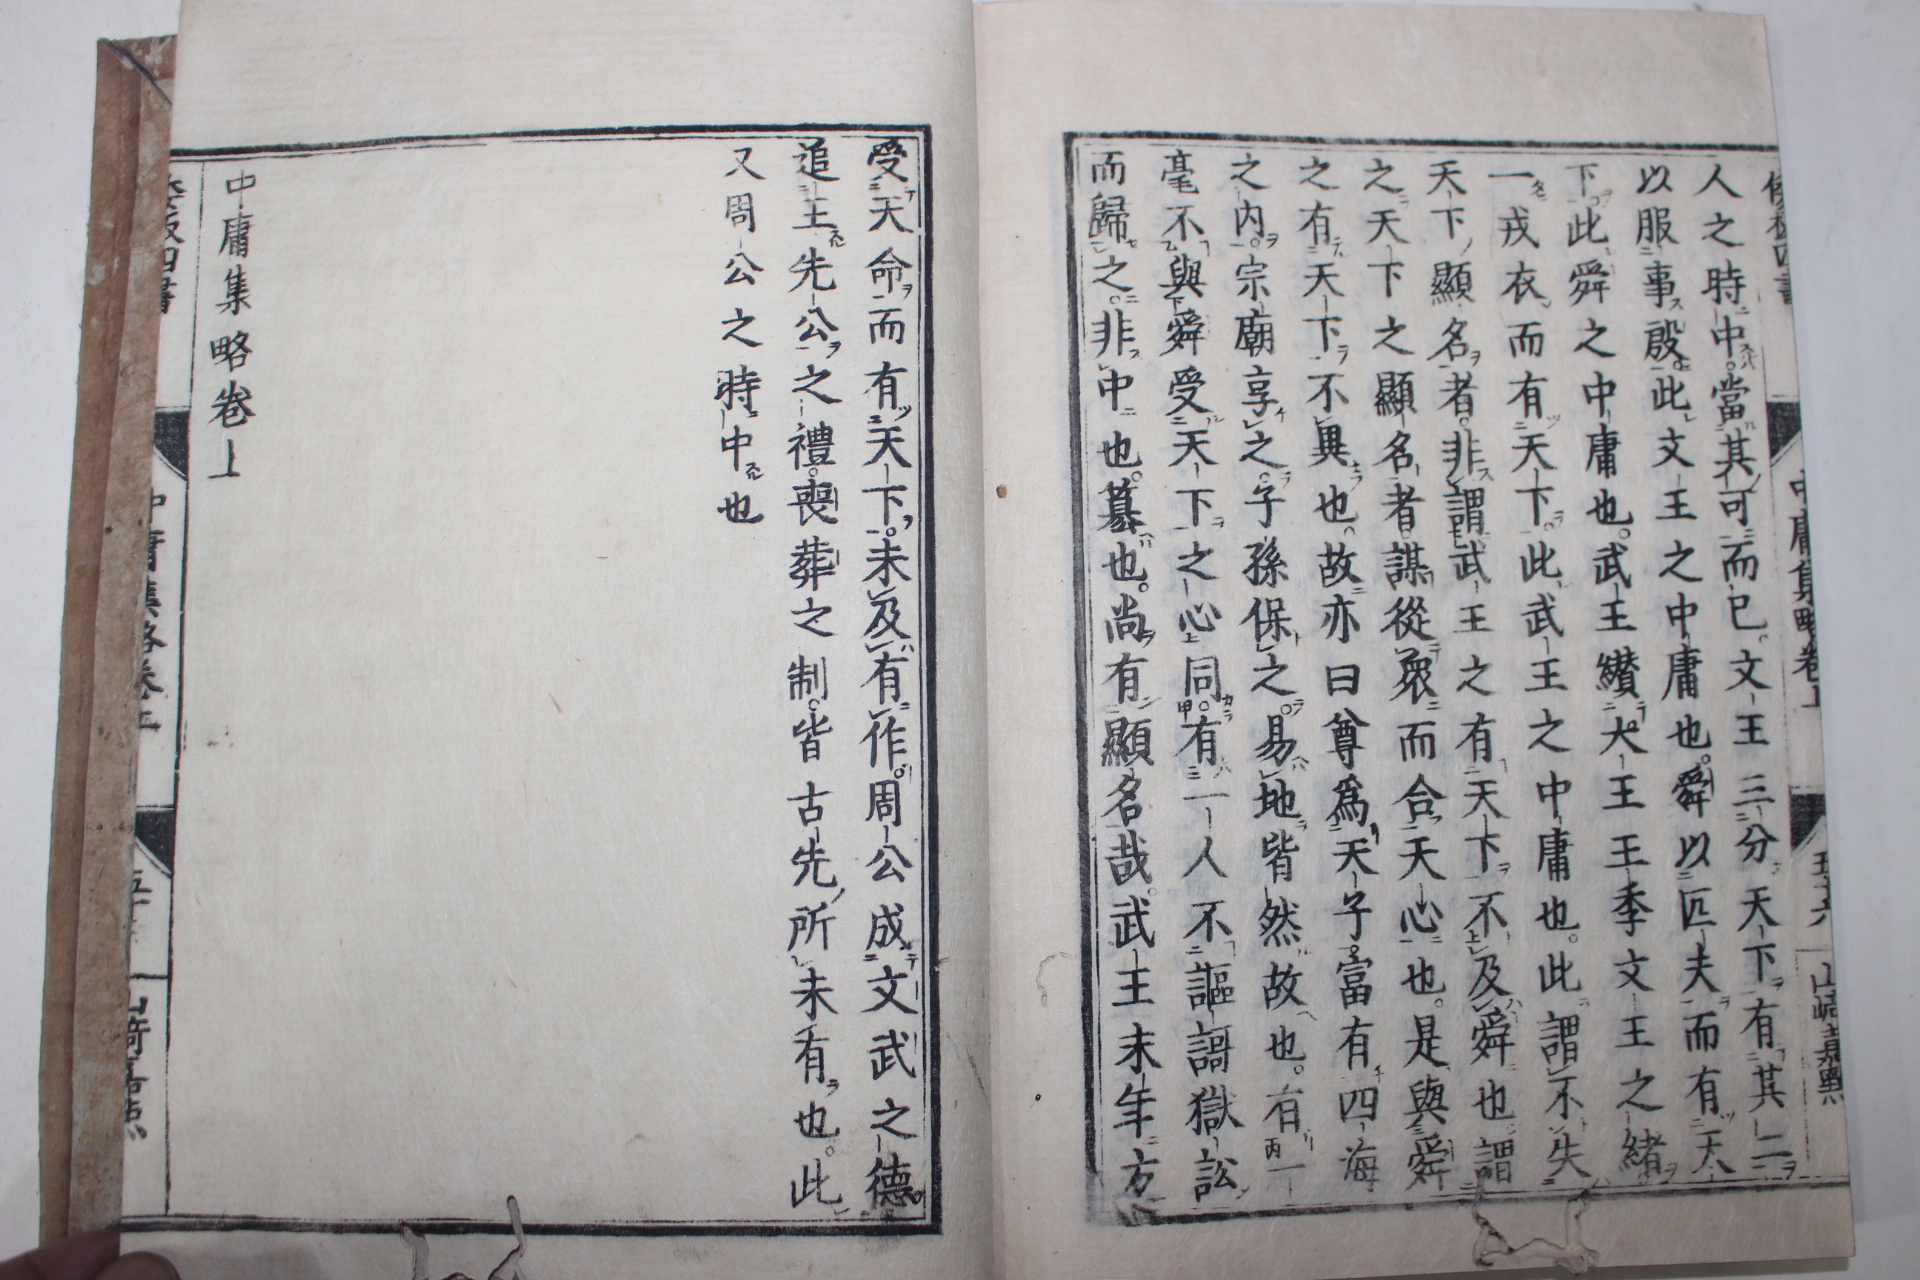 中庸集略卷上
山﨑嘉點
人之時中。當其可而已。文王三分天下有其二
以服事殷。此文王之中庸也。舜以匹夫而有天
下。此舜之中庸也。武王纘大王王季文王之緒
一戎衣而有天下。此武王之中庸也。此謂不失
天下顯名者。非謂武王之有天下不及舜也。謂
之天下之顯名者。謀從衆而合天心也。是與舜
之有天下不異也。故亦曰尊爲天子。富有四海
之內。宗廟享之。子孫保之。易地皆然故也。有一
毫不與舜受天下之心同。有一人不謳謌獄訟
而歸之。非中也。篡也。尚有顯名哉。武王末年方
受天命而有天下。未及有作。周公成文武之德
追王先公之禮。喪葬之制。皆古先所未有也。此
又周公之時中也
中庸集略卷上